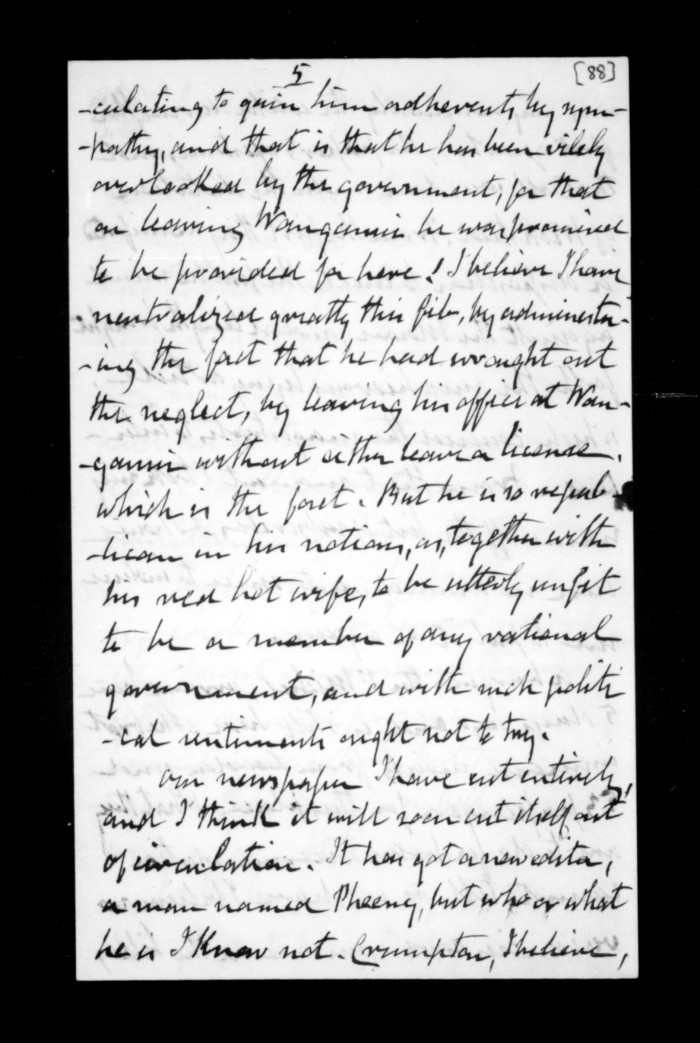 5
[88]
-culating to gain him adherents by sym-
-pathy, and that is that he has been vilely
overlooked by the government, for that
on leaving Wanganui he was promised
to be provided for here! I believe I have
neutralized greatly this fib, by administer-
-ing the fact that he had wrought out
the neglect, by leaving his office at Wan-
-ganui without either leave or license,
which is the fact. But he is so repub-
-lican in his notions, as, together with
his red hot wife, to be utterly unfit
to be a member of any rational
government, and with such politi
-cal sentiments ought not to try.
Our newspaper I have cut entirely,
and I think it will soon cut itself out
of circulation. It has got a new editor,
a man named Pheeney, but who or what
he is I know not. Crompton, I believe,